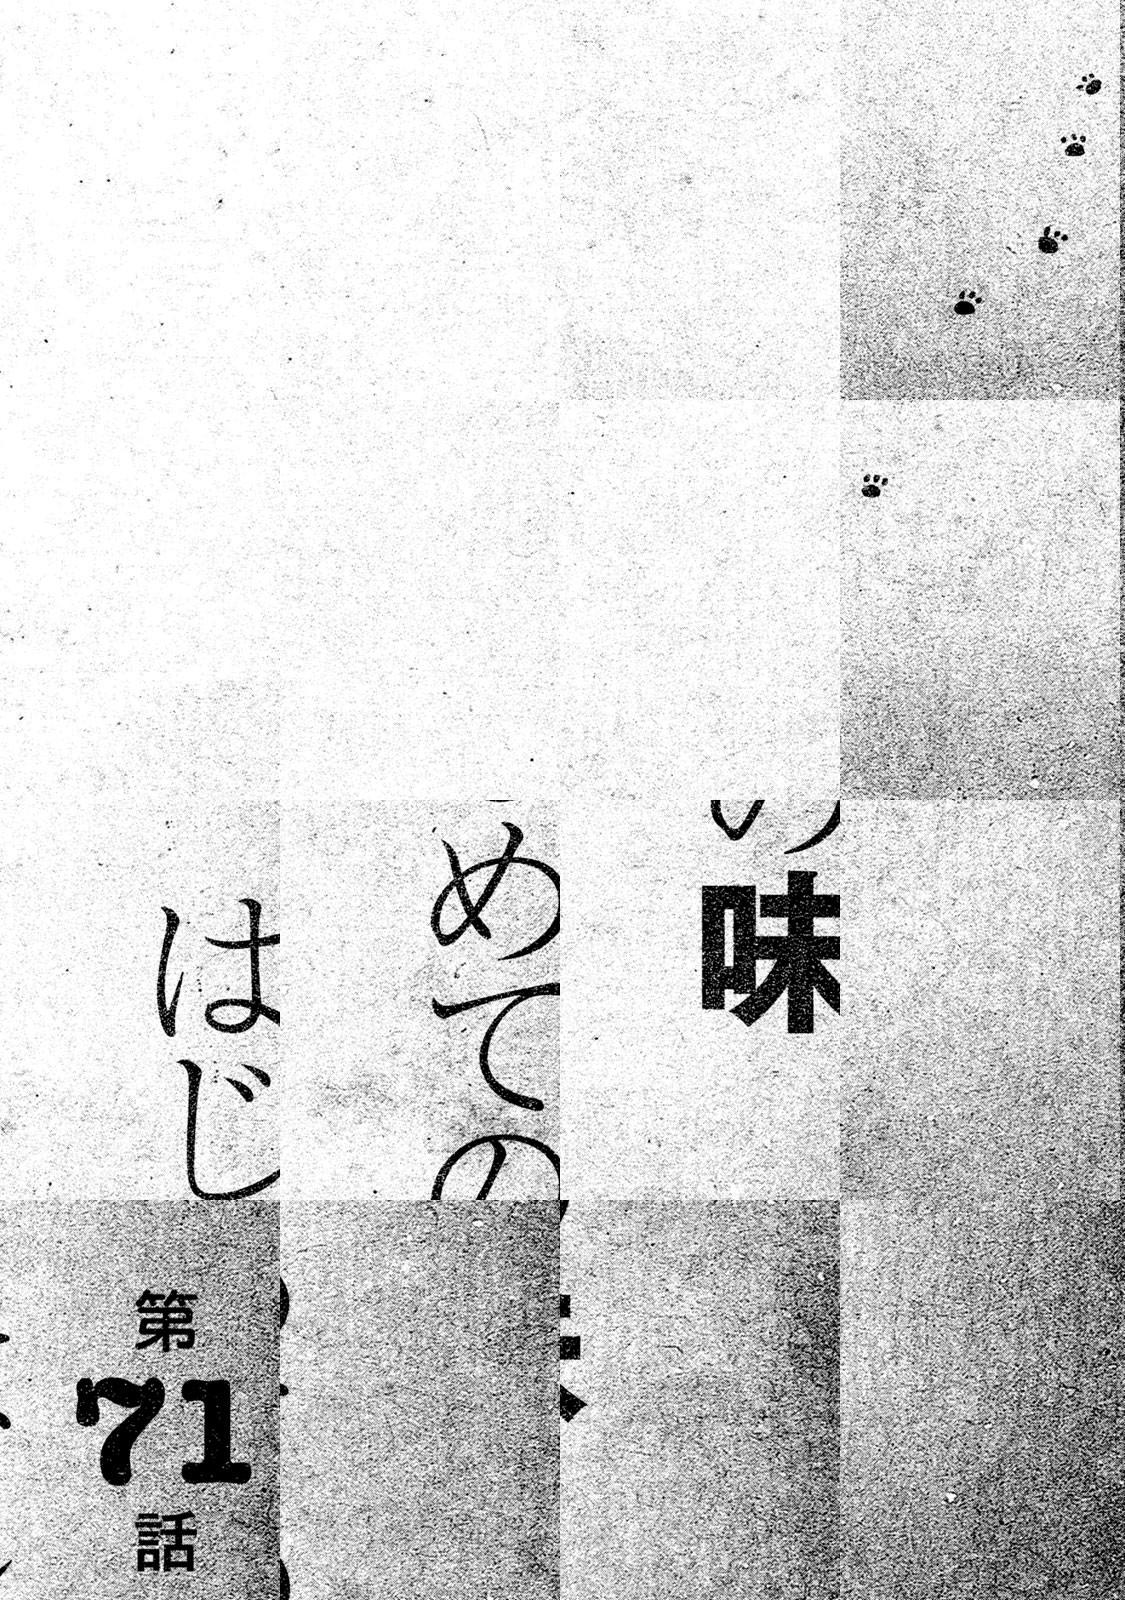 第71話
はじめての味